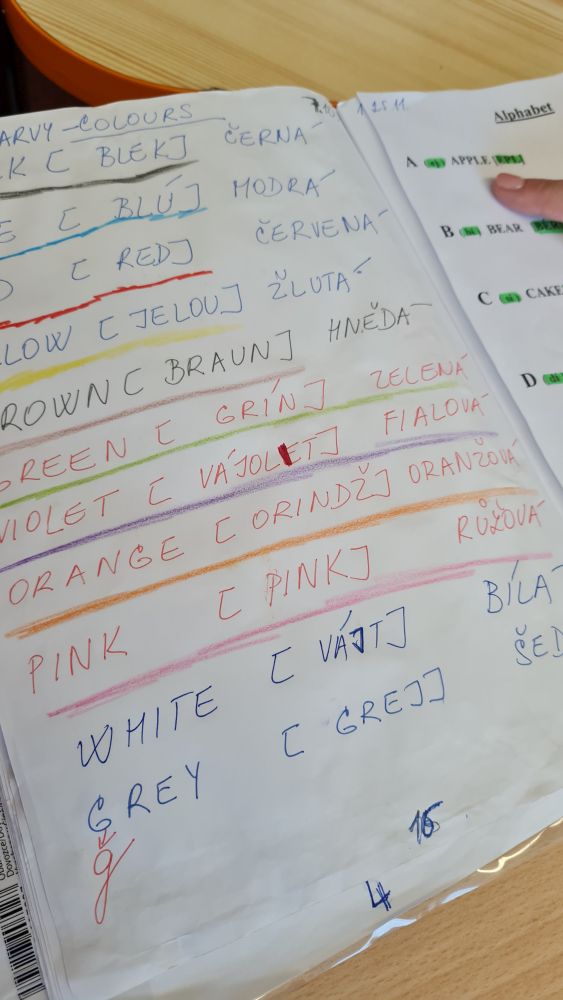 ARVY - COLOURS
LK [ BLEK] ČERNÁ
E [ BLÚ] MODRÁ
D [ RED] ČERVENÁ
LLOW [ JELOU] ŽLUTÁ
ROWN [ BRAUN] HNĚDÁ
GREEN [ GRÍN] ZELENÁ
VIOLET [ VÁJOLET] FIALOVÁ
ORANGE [ ORINDŽ] ORANŽOVÁ
PINK [ PINK] RŮŽOVÁ
WHITE [ VÁJT] BÍLÁ
GREY [ GREJ] ŠED
g
16
4
Alphabet
A APPLE [EPL]
B BEAR BER
C CAKE
D